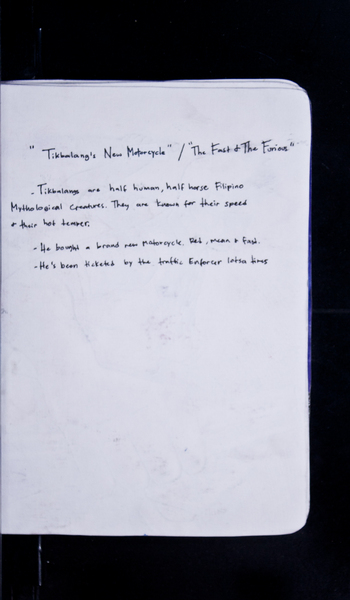 "Tikbalang's New Motorcycle" / "The Fast & The Furious"
- Tikbalangs are half human, half horse Filipino
Mythological creatures. They are known for their speed
& their hot temper.
- He bought a brand new motorcycle. Red, mean & fast.
- He's been ticketed by the traffic Enforcer lotsa times